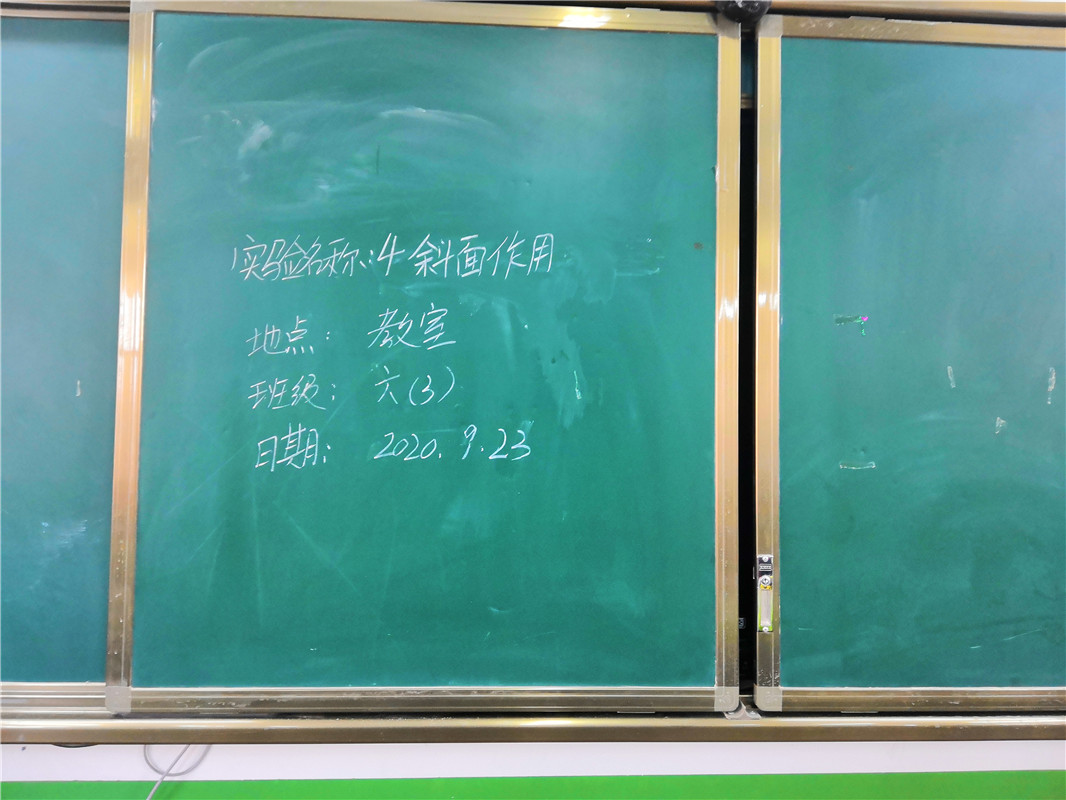 实验名称:4 斜面作用
地点: 教室
班级: 六(3)
日期: 2020.9.23